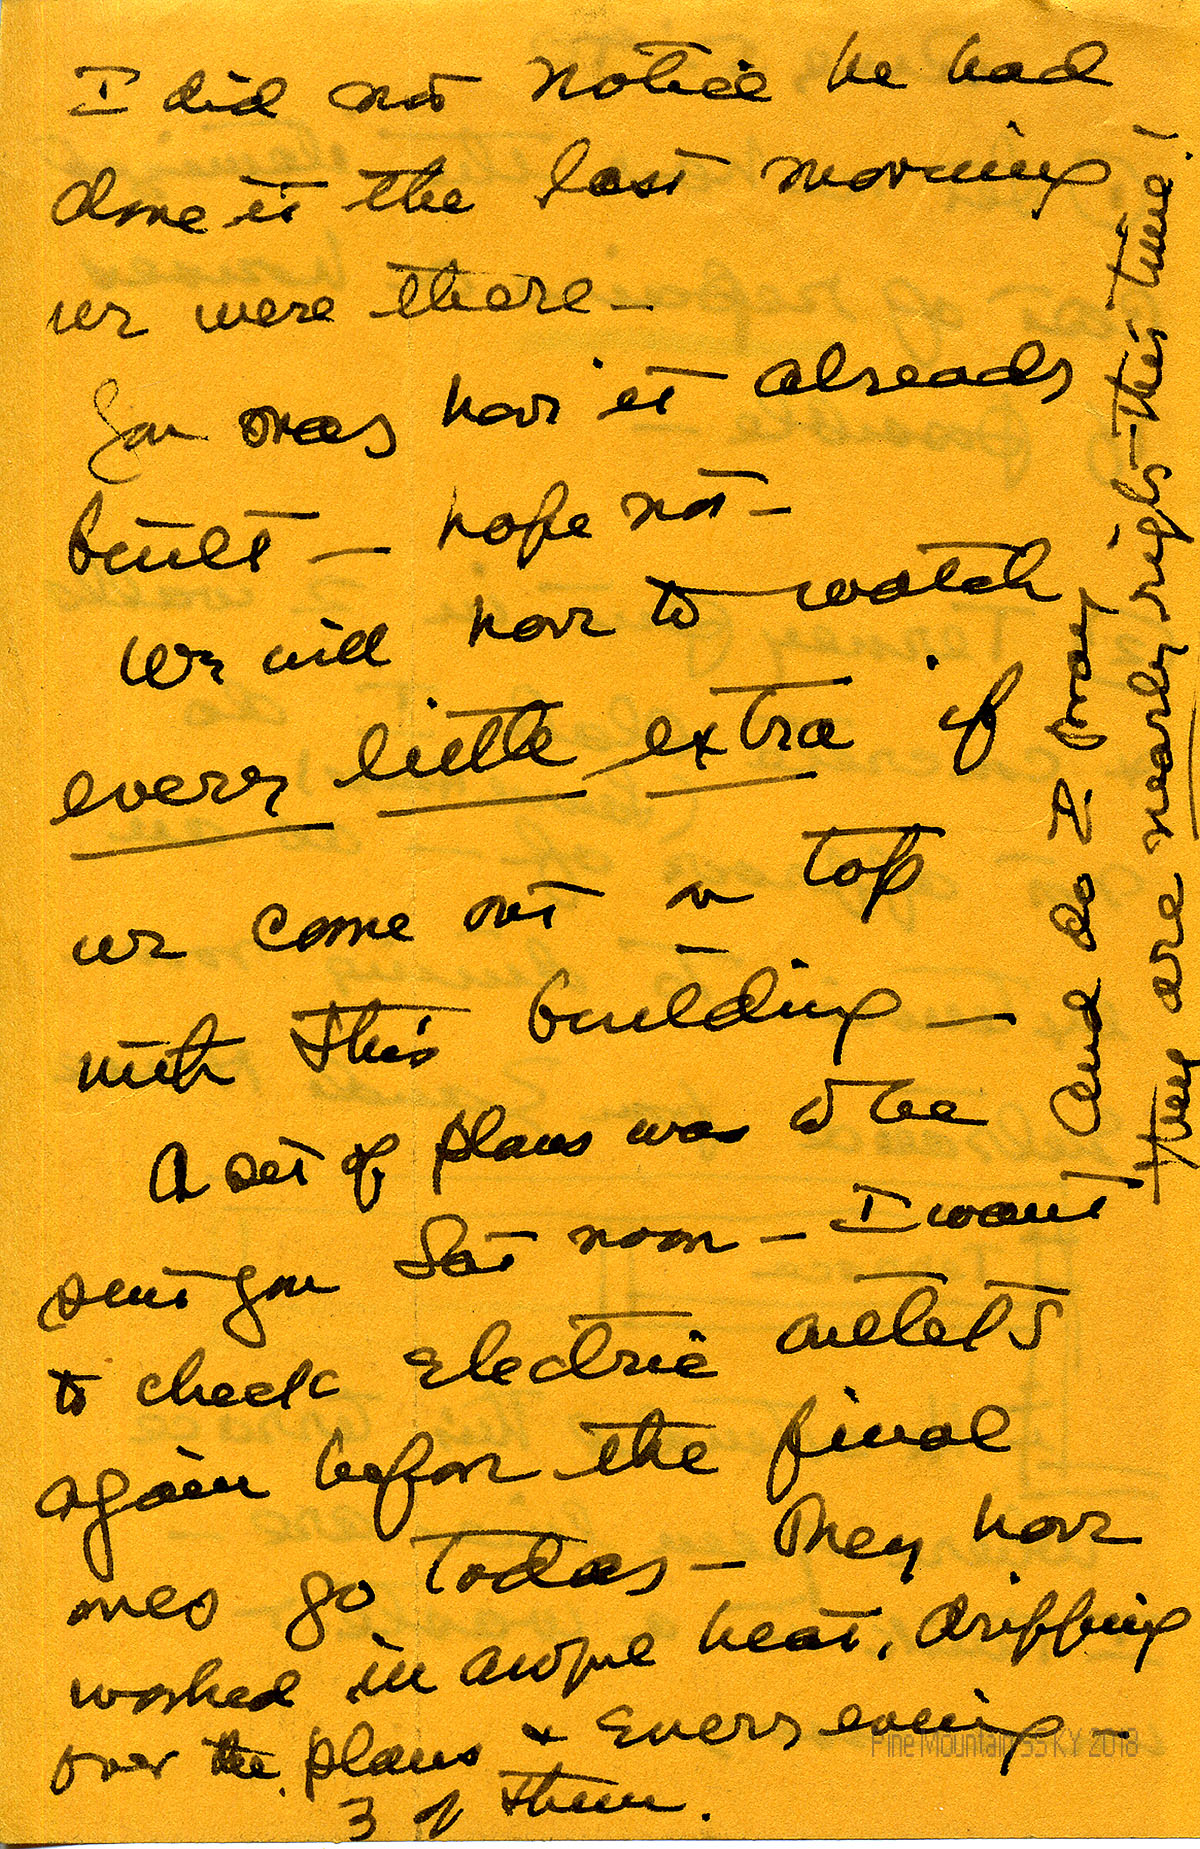 I did not notice he had
done it the last morning
we were there —
You may have it already
built — hope not —
We will have to watch
every little extra if
we come out on top
with this building —
A set of plans was to be
sent you Sat noon — I want
to check Electric outlets
again before the final
ones go today — They have
worked in awful heat, dripping
over the plans & Every evening —
3 of them.
And do I pray
they are nearly right — this time!
Pine Mountain SS KY 2018